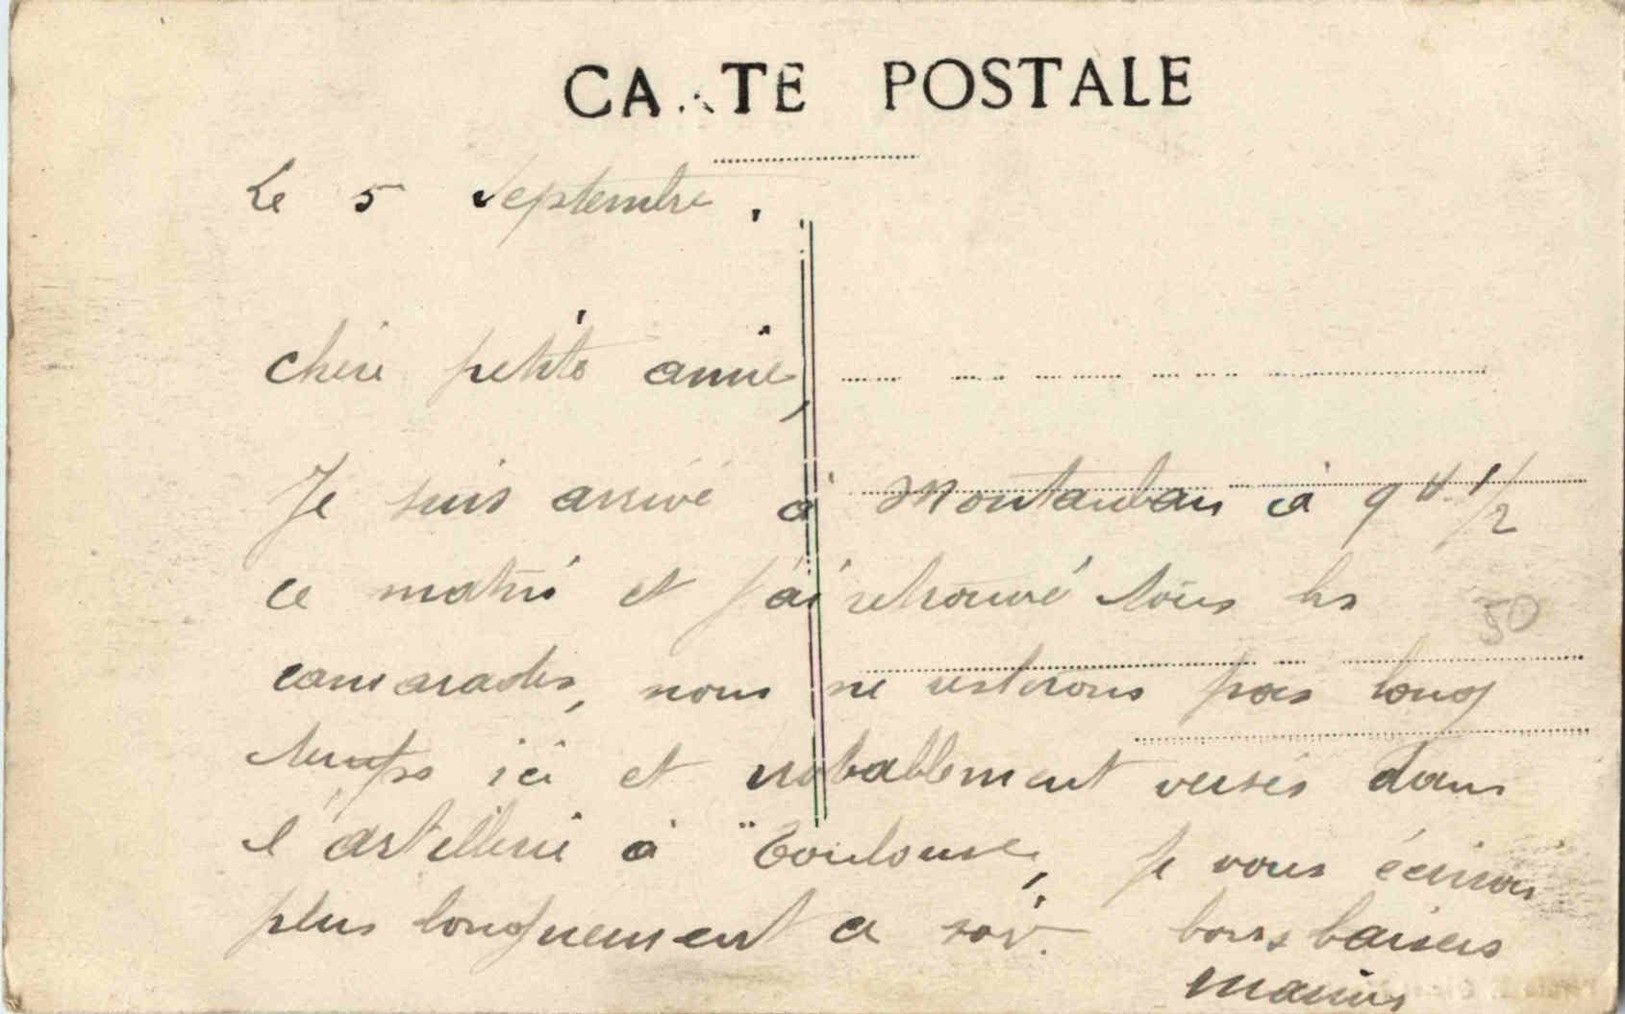 CARTE POSTALE
Le 5 Septembre.
Chère petite amie,
Je suis arrivé à Montauban à 9 H 1/2
ce matin et j'ai retrouvé tous les
camarades, nous ne resterons pas long
temps ici et probablement versés dans
l'artillerie à Toulouse, je vous écrirai
plus longuement ce soir. bons baisers
Marius
50